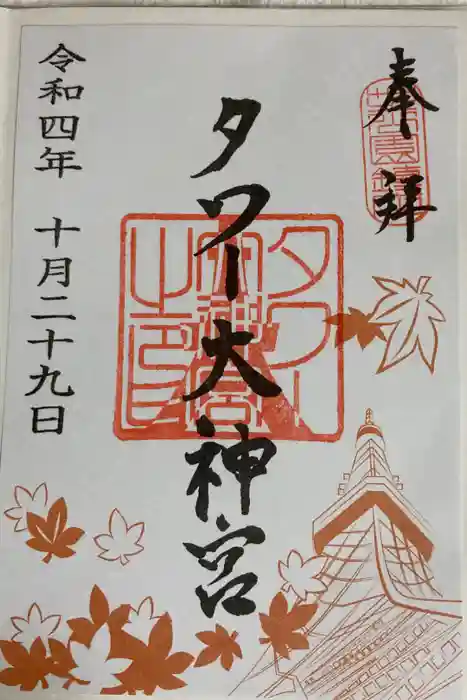 奉拝
タワー大神宮
タワー大神宮之印
令和四年 十月二十九日